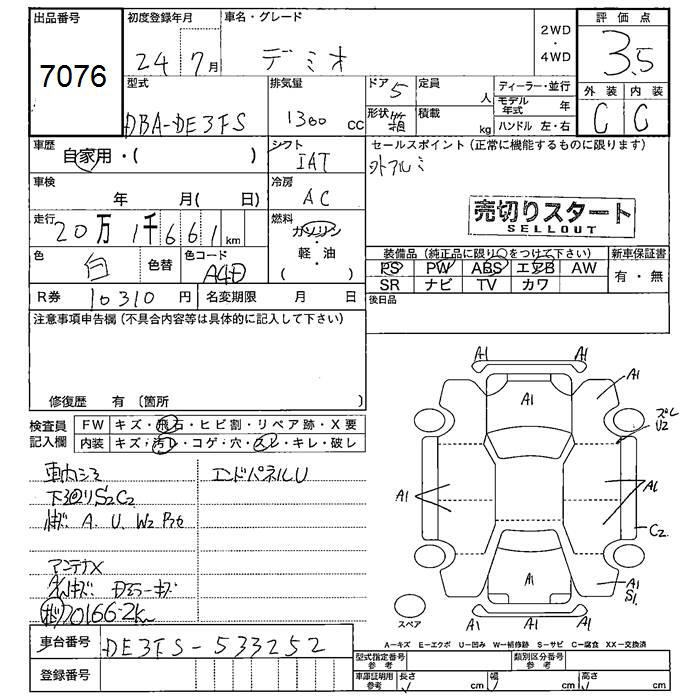 出品番号
7076
初度登録年月
24 7月
車名・グレード
デミオ
2WD
・
4WD
評価点
3.5
外装 内装
C C
型式
DBA-DE3FS
排気量
1300 cc
ドア 5
形状
定員 人
積載 kg
ディーラー・並行
モデル年式 年
ハンドル 左・右
車歴
自家用・( )
シフト
IAT
セールスポイント (正常に機能するものに限ります)
外アルミ
車検
年 月( 日)
冷房
AC
売切りスタート
SELLOUT
走行
20万1千661km
燃料
ガソリン
軽・油
( )
色
白
色替
色コード
A4D
装備品 (純正品に限り○をつけて下さい)
新車保証書
PS PW ABS エアB AW
SR ナビ TV カワ
有・無
R券 10310円
名変期限 月 日
後日品
注意事項申告欄 (不具合内容等は具体的に記入して下さい)
修復歴 有 (箇所 )
検査員
記入欄
FW キズ・飛石・ヒビ割・リペア跡・X要
内装 キズ・汚レ・コゲ・穴・スレ・キレ・破レ
エンドパネルU
下回りS2C2
A. U. W2
アンテナX
70166-2km
A1 A1
A1
A1
ズレ
U2
A1
A1
C2
A1
A1
S1
A1 A1
スペア
車台番号 DE3FS-533252
登録番号
A-キズ E-エクボ U-凹み W-補修跡 S-サビ C-腐食 XX-交換済
型式指定番号
参考
類別区分番号
参考
車庫証明用
参考
長さ cm 幅 cm 高さ cm